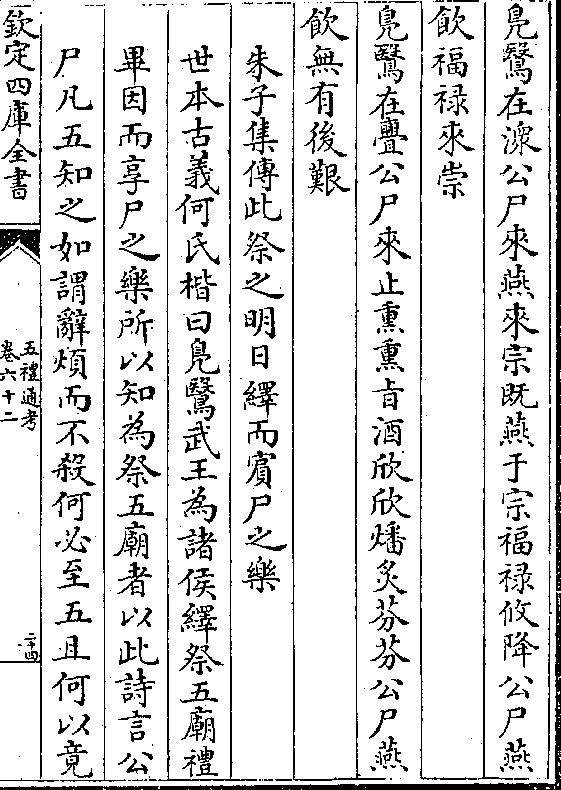 鳬鷖在潨公尸來燕來宗既燕于宗福禄攸降公尸燕
飲福禄來崇
鳬鷖在亹公尸來止熏熏旨酒欣欣燔炙芬芬公尸燕
飲無有後艱
朱子集傳此祭之明日繹而賓尸之樂
世本古義何氏楷曰鳬鷖武王為諸侯繹祭五廟禮
畢因而享尸之樂所以知為祭五廟者以此詩言公
尸凡五知之如謂辭煩而不殺何必至五且何以竟
欽定四庫全書
五禮通考
卷六十二
二十四